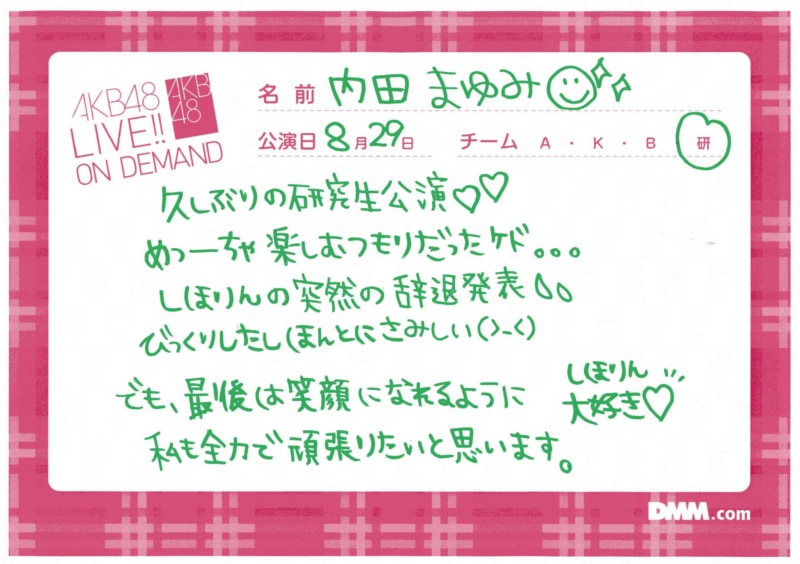 AKB48
LIVE!!
ON DEMAND
AKB
48
名前 内田 まゆみ
公演日 8月29日 チーム A・K・B 研
久しぶりの研究生公演♡♡
めっーちゃ楽しむつもりだったケド。。。
しほりんの突然の辞退発表
びっくりしたしほんとにさみしい(>_<)
でも、最後は笑顔になれるように
私も全力で頑張りたいと思います。
しほりん
大好き♡
DMM.com